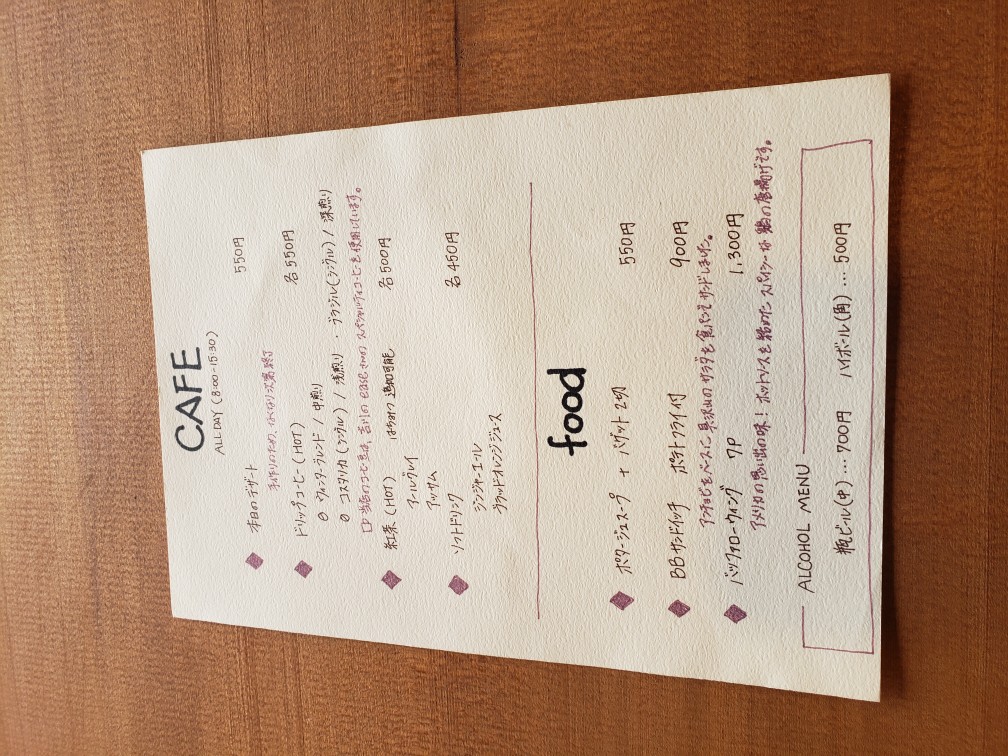 CAFE
ALL DAY (8:00-15:30)
本日のデザート 550円
手作りのため、なくなり次第終了
ドリップコーヒー (HOT) 各550円
ウィンターブレンド / 中煎り
コスタリカ (シングル) / 浅煎り ・ ブラジル (シングル) / 深煎り
当店のコーヒー豆は、吉川の さんの スペシャルティコーヒーを使用しています。
紅茶 (HOT) はちみつ 追加可能 各500円
アールグレイ
アッサム
ソフトドリンク 各450円
ジンジャーエール
ブラッドオレンジジュース
food
ポタージュスープ + バゲット2切 550円
BBサンドイッチ ポテトフライ付 900円
アンチョビをベースに具沢山のサラダを食パンでサンドしました。
バッファローウィング 7P 1,300円
アメリカの思い出の味! ホットソースを絡めた スパイシーな 鶏の唐揚げです。
ALCOHOL MENU
瓶ビール(中)... 700円 ハイボール(角)... 500円